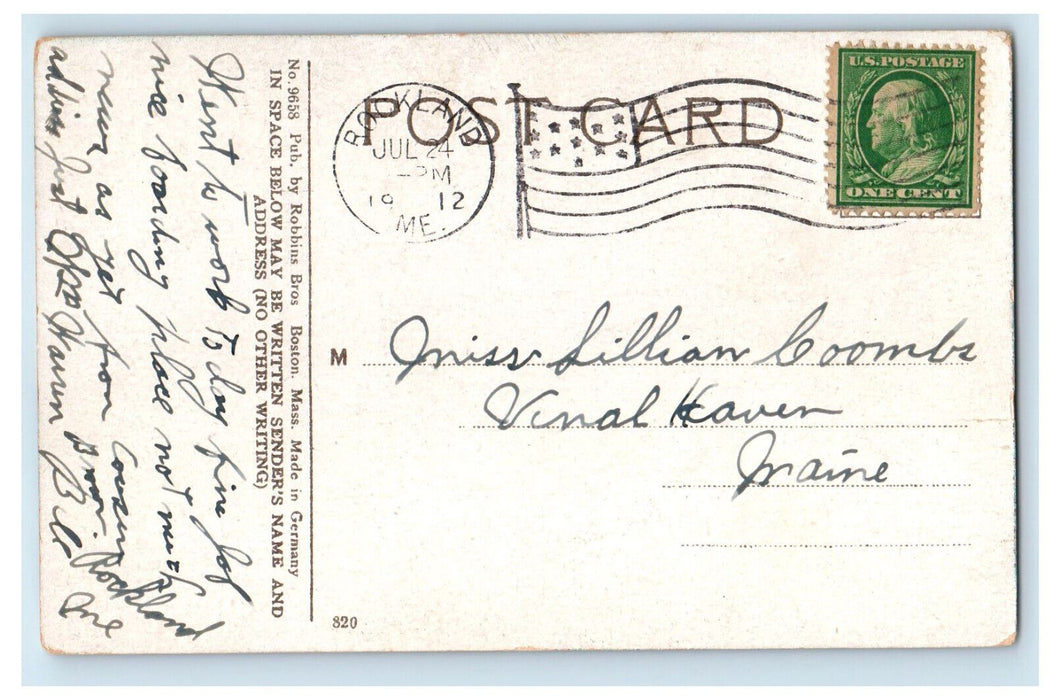 POST CARD
ROCKLAND
JUL 24
-PM
19 12
ME.
U.S. POSTAGE
ONE CENT
M Miss Lillian Coombs
Vinal Haven
Maine
820
No. 9658 Pub. by Robbins Bros Boston. Mass. Made in Germany
IN SPACE BELOW MAY BE WRITTEN SENDER'S NAME AND
ADDRESS (NO OTHER WRITING)
Went to work To day fine Job
nice boarding place not much
news as yet from Cousin Bill
address Just Rockland Me